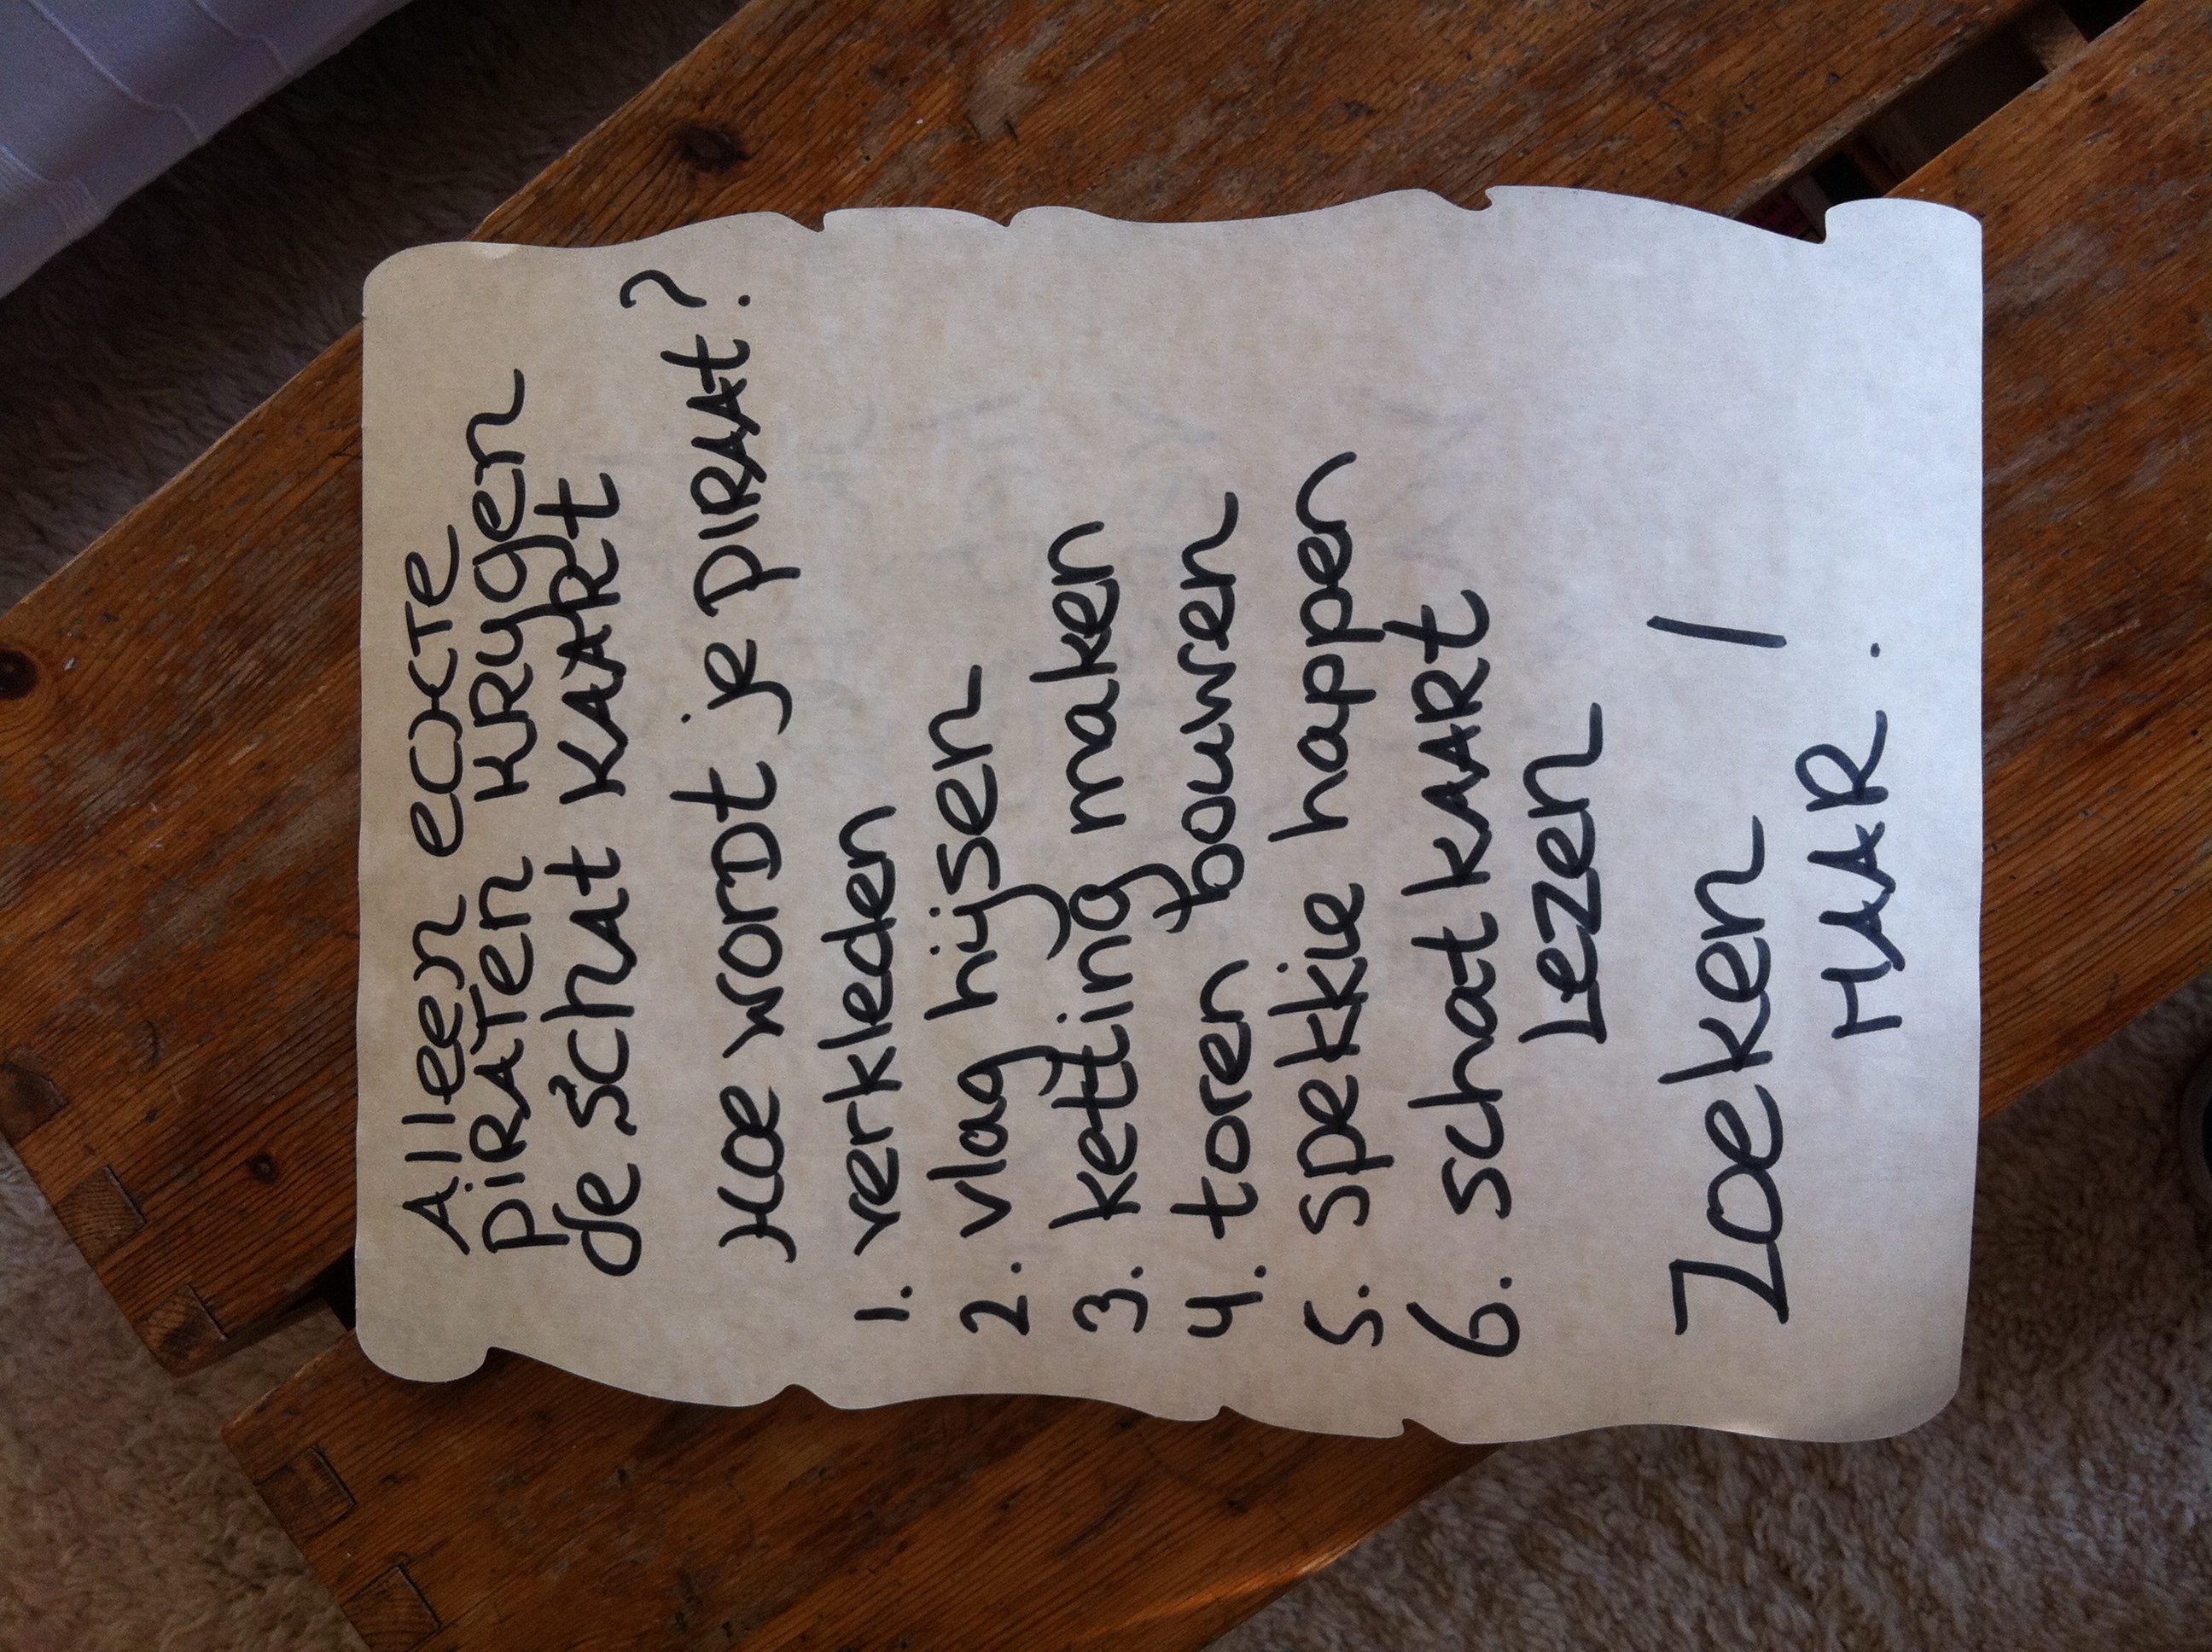 Alleen echte
piraten krijgen
de schat kaart
Hoe wordt je piraat?
1. verkleden
2. vlag hijsen
3. ketting maken
4. toren bouwen
5. spekkie happen
6. schat kaart
Lezen
Zoeken
maar!